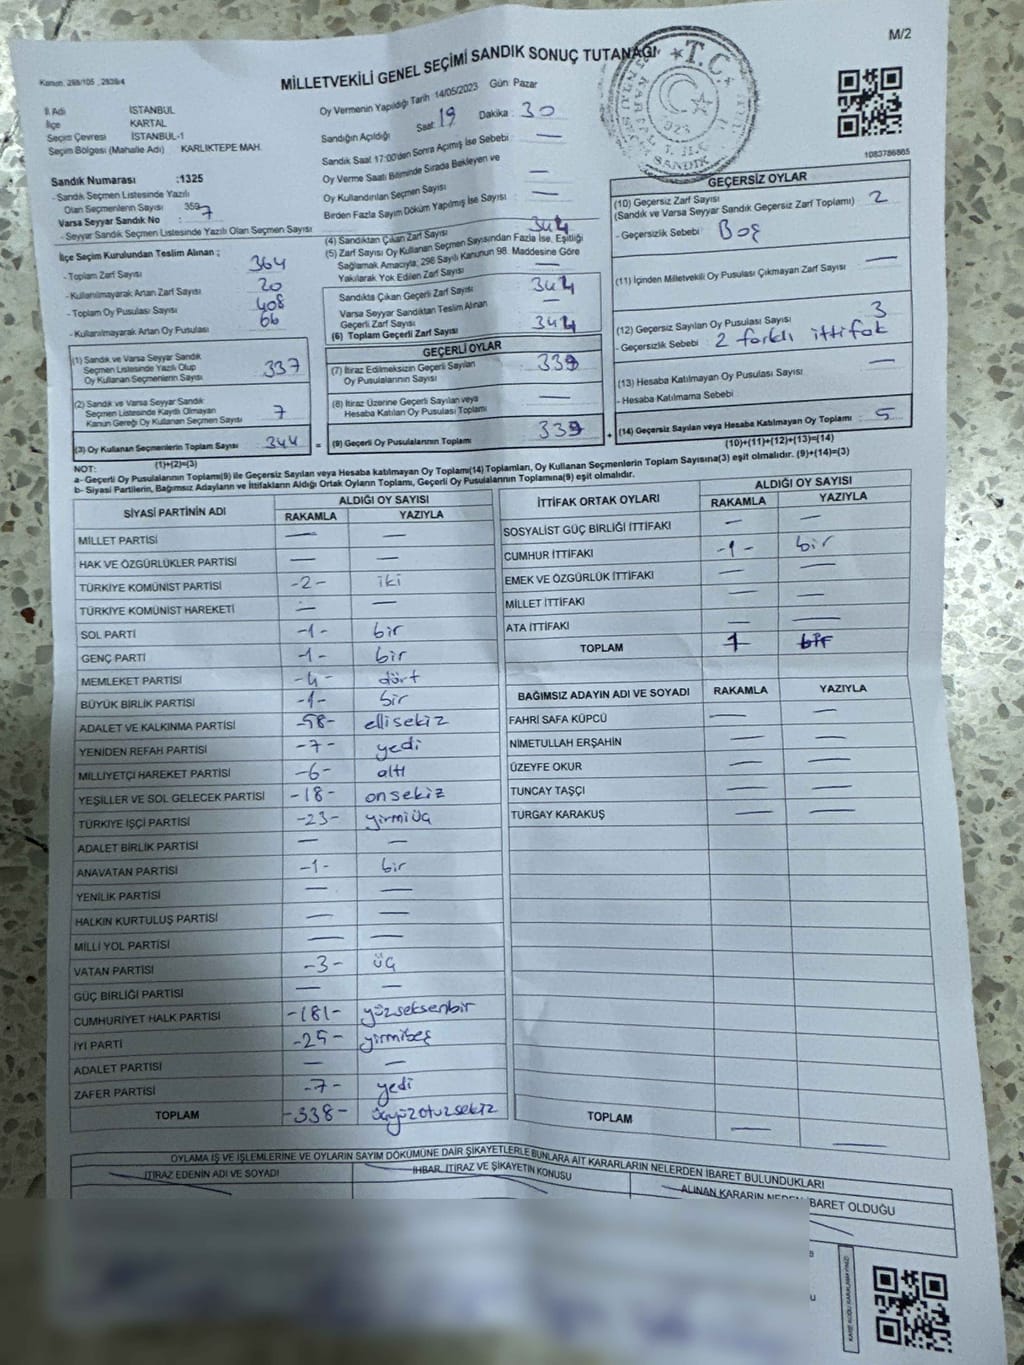 M/2
Kanun: 298/105 , 2839/4
MİLLETVEKİLİ GENEL SEÇİMİ SANDIK SONUÇ TUTANAĞI
T.C.
1083786865
İl Adı İSTANBUL
İlçe KARTAL
Seçim Çevresi İSTANBUL-1
Seçim Bölgesi (Mahalle Adı) KARLIKTEPE MAH.
Sandık Numarası :1325
- Sandık Seçmen Listesinde Yazılı
Olan Seçmenlerin Sayısı 359
Varsa Seyyar Sandık No : 7
- Seyyar Sandık Seçmen Listesinde Yazılı Olan Seçmen Sayısı
İlçe Seçim Kurulundan Teslim Alınan ;
- Toplam Zarf Sayısı 364
- Kullanılmayarak Artan Zarf Sayısı 20
- Toplam Oy Pusulası Sayısı 408
- Kullanılmayarak Artan Oy Pusulası 66
(1) Sandık ve Varsa Seyyar Sandık
Seçmen Listesinde Yazılı Olup
Oy Kullanan Seçmenlerin Sayısı 337
(2) Sandık ve Varsa Seyyar Sandık
Seçmen Listesinde Kayıtlı Olmayan
Kanun Gereği Oy Kullanan Seçmen Sayısı 7
(3) Oy Kullanan Seçmenlerin Toplam Sayısı 344 =
(1)+(2)=(3)
Oy Vermenin Yapıldığı Tarih 14/05/2023 Gün: Pazar
Sandığın Açıldığı Saat: 19 Dakika : 30
Sandık Saat 17:00'den Sonra Açılmış İse Sebebi : —
Oy Verme Saati Bitiminde Sırada Bekleyen ve
Oy Kullandırılan Seçmen Sayısı —
Birden Fazla Sayım Döküm Yapılmış İse Sayısı : —
(4) Sandıktan Çıkan Zarf Sayısı 344
(5) Zarf Sayısı Oy Kullanan Seçmen Sayısından Fazla İse, Eşitliği
Sağlamak Amacıyla, 298 Sayılı Kanunun 98. Maddesine Göre
Yakılarak Yok Edilen Zarf Sayısı —
Sandıkta Çıkan Geçerli Zarf Sayısı 344
Varsa Seyyar Sandıktan Teslim Alınan
Geçerli Zarf Sayısı —
(6) Toplam Geçerli Zarf Sayısı 344
GEÇERLİ OYLAR
(7) İtiraz Edilmeksizin Geçerli Sayılan
Oy Pusulalarının Sayısı 339
(8) İtiraz Üzerine Geçerli Sayılan veya
Hesaba Katılan Oy Pusulası Toplamı —
(9) Geçerli Oy Pusulalarının Toplamı 339 +
GEÇERSİZ OYLAR
(10) Geçersiz Zarf Sayısı 2
(Sandık ve Varsa Seyyar Sandık Geçersiz Zarf Toplamı)
- Geçersizlik Sebebi Boş
(11) İçinden Milletvekili Oy Pusulası Çıkmayan Zarf Sayısı —
(12) Geçersiz Sayılan Oy Pusulası Sayısı 3
- Geçersizlik Sebebi 2 farklı ittifak
(13) Hesaba Katılmayan Oy Pusulası Sayısı —
- Hesaba Katılmama Sebebi
(14) Geçersiz Sayılan veya Hesaba Katılmayan Oy Toplamı : 5
(10)+(11)+(12)+(13)=(14)
NOT:
a- Geçerli Oy Pusulalarının Toplamı(9) ile Geçersiz Sayılan veya Hesaba katılmayan Oy Toplamı(14) Toplamları, Oy Kullanan Seçmenlerin Toplam Sayısına(3) eşit olmalıdır. (9)+(14)=(3)
b- Siyasi Partilerin, Bağımsız Adayların ve İttifakların Aldığı Ortak Oyların Toplamı, Geçerli Oy Pusulalarının Toplamına(9) eşit olmalıdır.
SİYASİ PARTİNİN ADI ALDIĞI OY SAYISI
RAKAMLA YAZIYLA
MİLLET PARTİSİ — —
HAK VE ÖZGÜRLÜKLER PARTİSİ — —
TÜRKİYE KOMÜNİST PARTİSİ -2- iki
TÜRKİYE KOMÜNİST HAREKETİ — —
SOL PARTİ -1- bir
GENÇ PARTİ -1- bir
MEMLEKET PARTİSİ -4- dört
BÜYÜK BİRLİK PARTİSİ -1- bir
ADALET VE KALKINMA PARTİSİ -58- ellisekiz
YENİDEN REFAH PARTİSİ -7- yedi
MİLLİYETÇİ HAREKET PARTİSİ -6- altı
YEŞİLLER VE SOL GELECEK PARTİSİ -18- onsekiz
TÜRKİYE İŞÇİ PARTİSİ -23- yirmiüç
ADALET BİRLİK PARTİSİ — —
ANAVATAN PARTİSİ -1- bir
YENİLİK PARTİSİ — —
HALKIN KURTULUŞ PARTİSİ — —
MİLLİ YOL PARTİSİ — —
VATAN PARTİSİ -3- üç
GÜÇ BİRLİĞİ PARTİSİ — —
CUMHURİYET HALK PARTİSİ -181- yüzseksenbir
İYİ PARTİ -25- yirmibeş
ADALET PARTİSİ — —
ZAFER PARTİSİ -7- yedi
TOPLAM -338- üçyüzotuzsekiz
İTTİFAK ORTAK OYLARI ALDIĞI OY SAYISI
RAKAMLA YAZIYLA
SOSYALİST GÜÇ BİRLİĞİ İTTİFAKI — —
CUMHUR İTTİFAKI -1- bir
EMEK VE ÖZGÜRLÜK İTTİFAKI — —
MİLLET İTTİFAKI — —
ATA İTTİFAKI — —
TOPLAM 1 bir
BAĞIMSIZ ADAYIN ADI VE SOYADI RAKAMLA YAZIYLA
FAHRİ SAFA KÜPCÜ — —
NİMETULLAH ERŞAHİN — —
ÜZEYFE OKUR — —
TUNCAY TAŞÇI — —
TURGAY KARAKUŞ — —
TOPLAM — —
OYLAMA İŞ VE İŞLEMLERİNE VE OYLARIN SAYIM DÖKÜMÜNE DAİR ŞİKAYETLERLE BUNLARA AİT KARARLARIN NELERDEN İBARET BULUNDUKLARI
İTİRAZ EDENİN ADI VE SOYADI İHBAR, İTİRAZ VE ŞİKAYETİN KONUSU ALINAN KARARIN NEDEN İBARET OLDUĞU